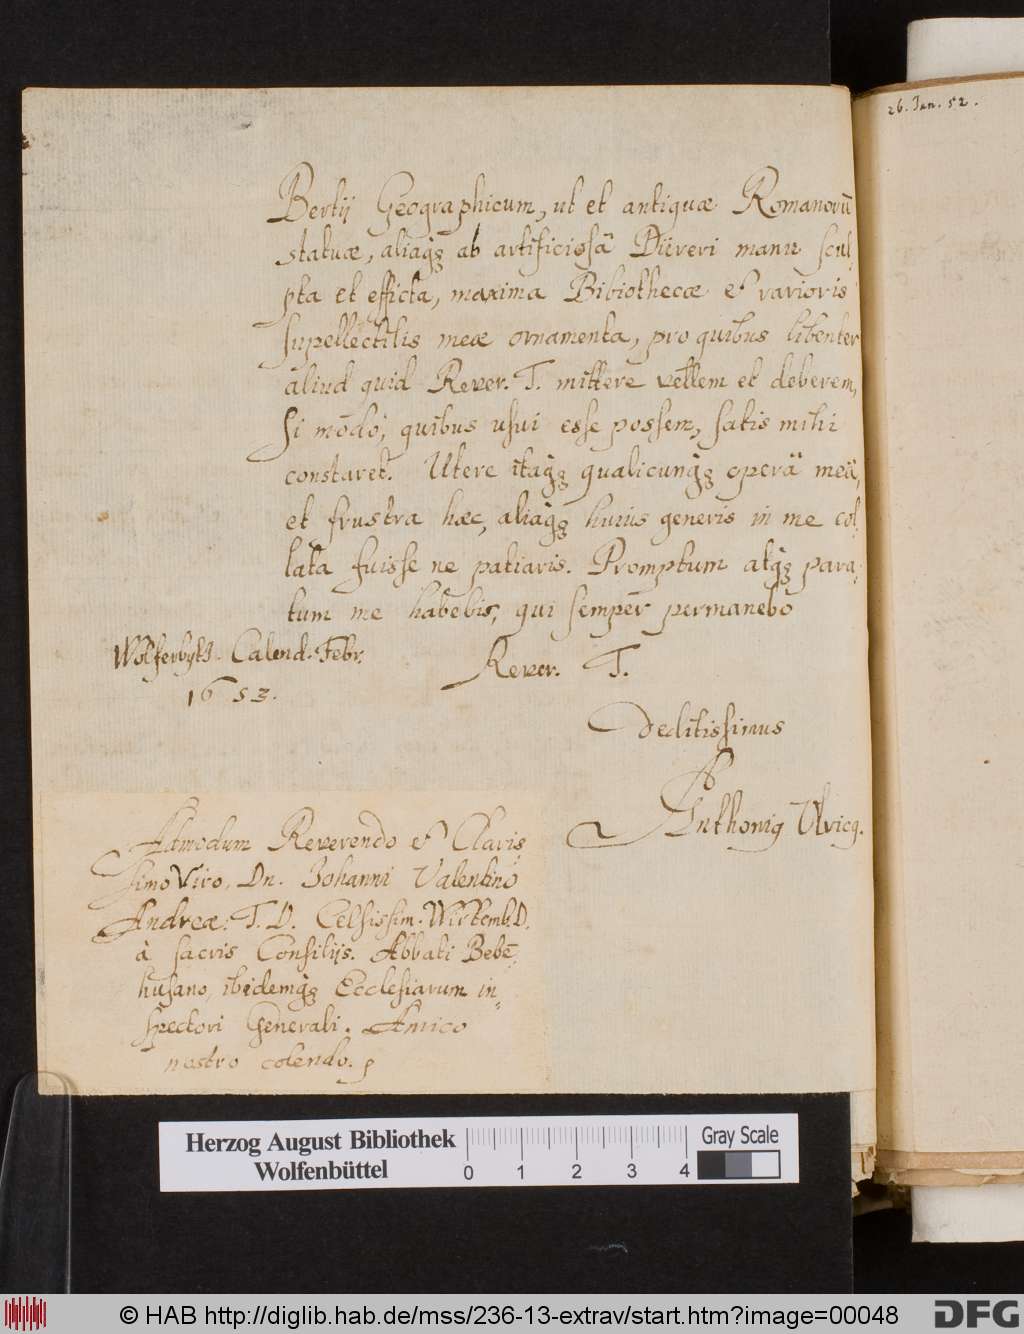 26. Jan. 52.
Bertij Geographicum, ut et antiquæ Romanorū
statuæ, aliaq3 ab artificiosâ Düreri manu scul-
pta et efficta, maxima Bibiothecæ et varioris
supellectilis meæ ornamenta, pro quibus libenter
aliud quid Rever. T. mittere vellem et deberem,
Si modò, quibus usui esse possem, satis mihi
constaret. Utere itaq3 qualicunq3 operâ meâ,
et frustra hæc, aliaq3 huius generis in me col-
lata fuisse ne patiaris. Promptum atq3 para-
tum me habebis, qui semper permanebo
Wolferbyti. Calend. Febr.
1653.
Rever. T.
Deditissimus
Anthonig Ulricg.
Admodum Reverendo et Claris-
simo Viro, Dn. Johanni Valentino
Andreæ. T. D. Celsissim. Wirtemb. D.
à sacris Consilijs. Abbati Bebē-
husano, ibidemq3 Ecclesiarum in-
spectori Generali. Amico
nostro colendo.
Herzog August Bibliothek
Wolfenbüttel
0 1 2 3 4
Gray Scale
© HAB http://diglib.hab.de/mss/236-13-extrav/start.htm?image=00048
DFG